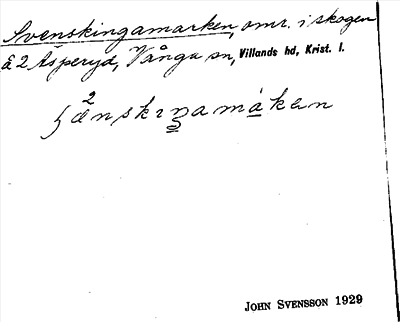 Svenskingamarken, omr. i skogen
å 2 Åsperyd, Vånga sn, Villands hd, Krist. l.
2
JOHN SVENSSON 1929